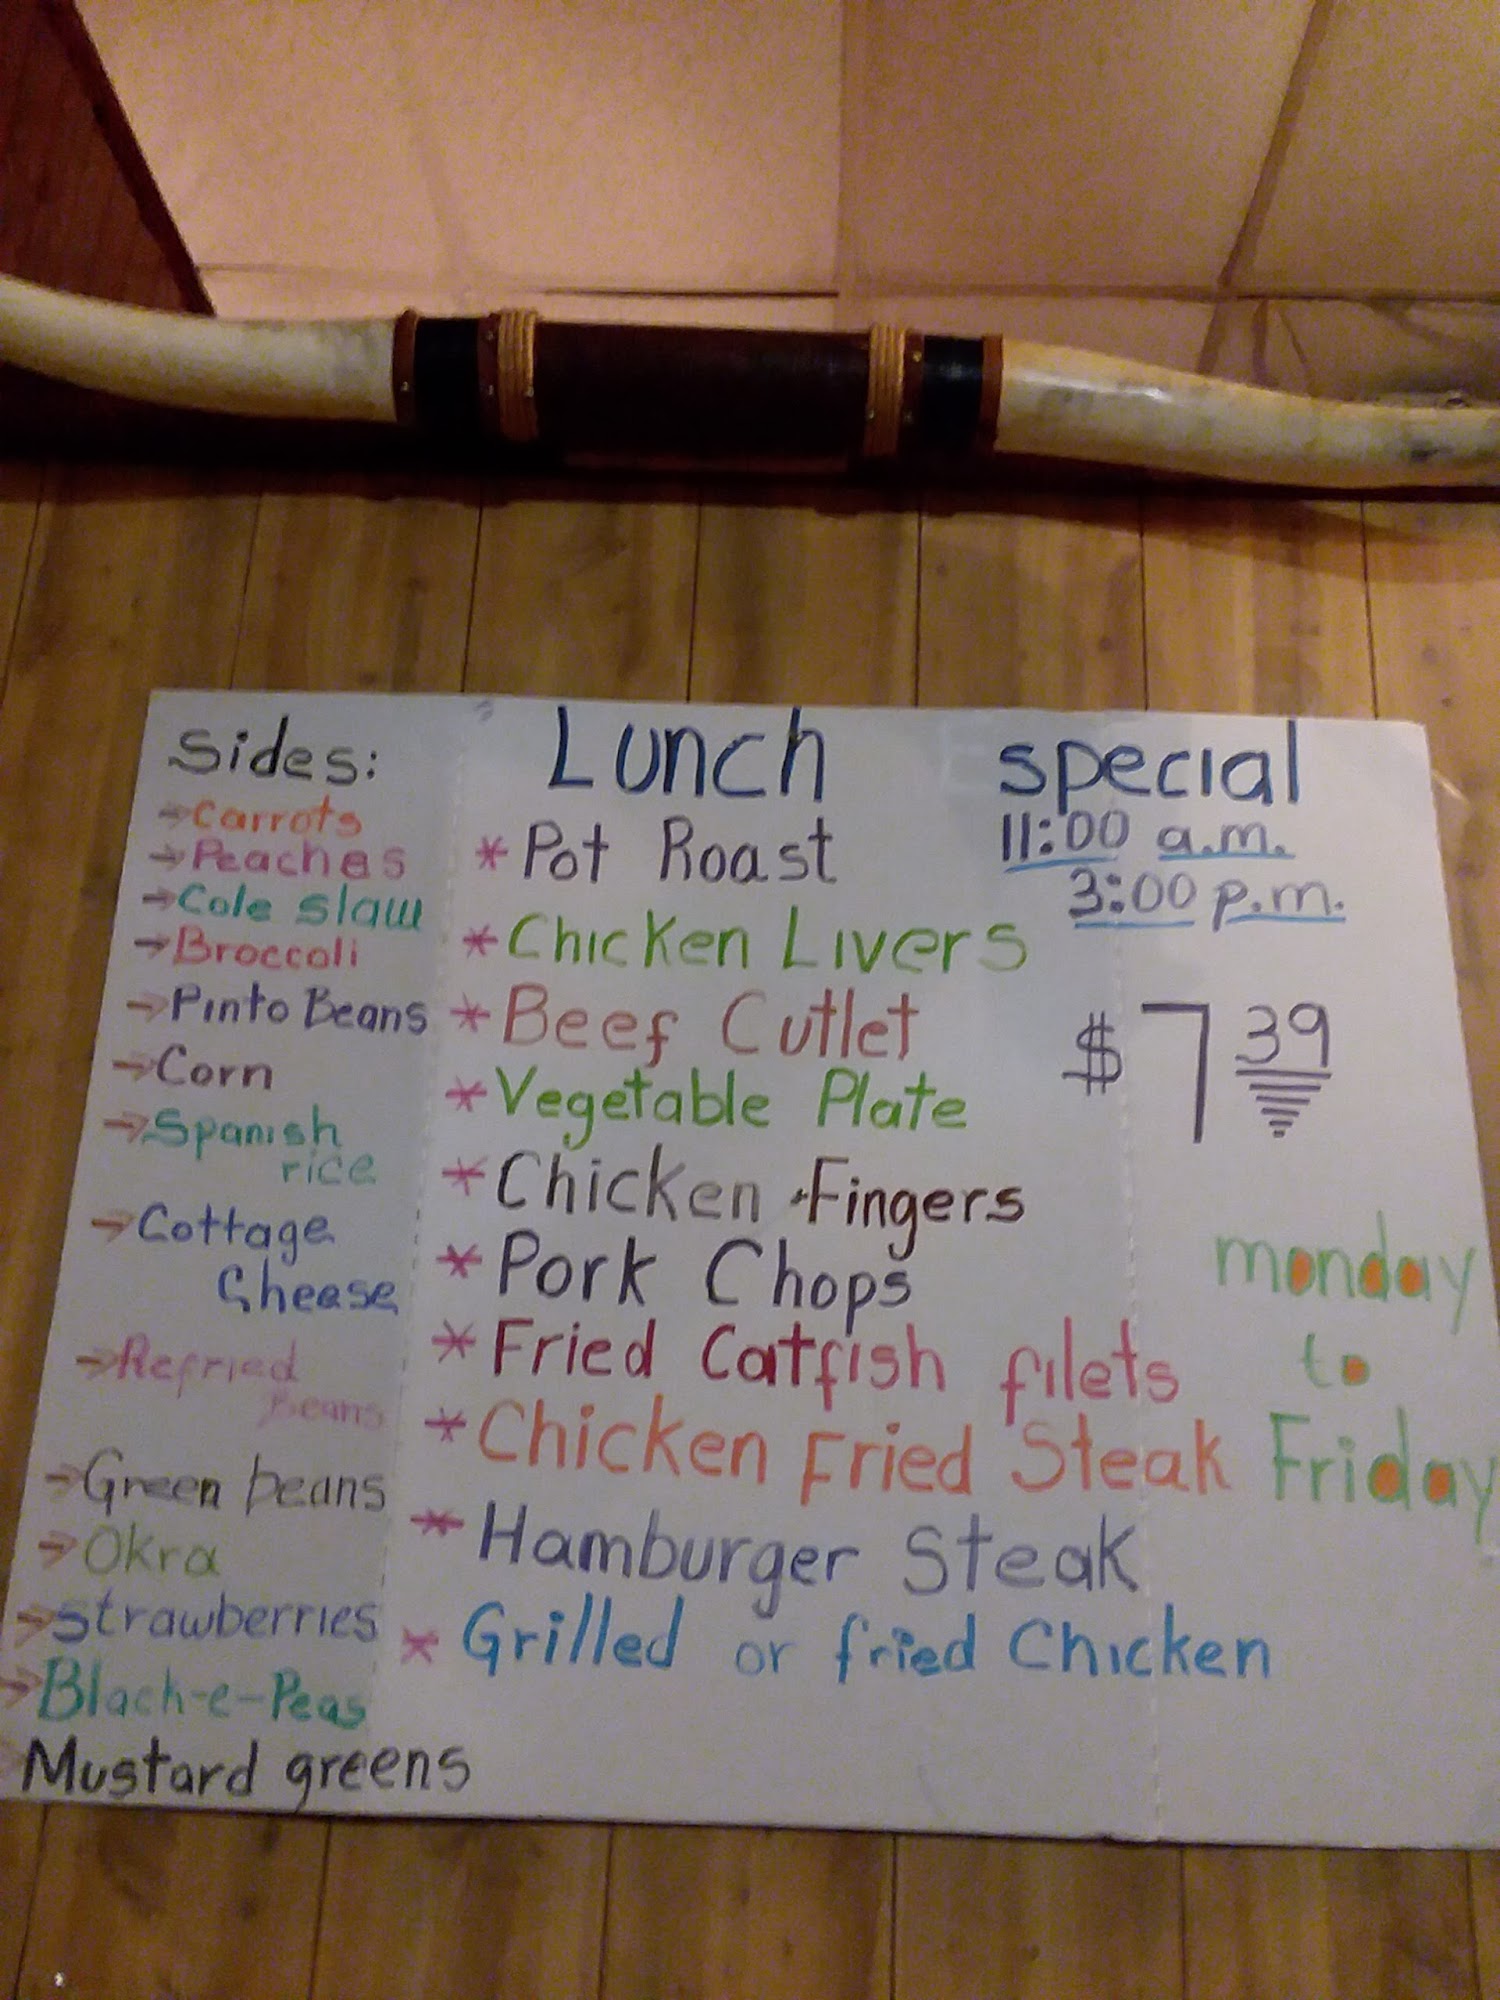 Sides:
Carrots
Peaches
Cole slaw
Broccoli
Pinto Beans
Corn
Spanish
rice
Cottage
Chease
Refried
Beans
Green beans
Okra
strawberries
Blach-e-Peas
Mustard greens
Lunch special
11:00 a.m.
3:00 p.m.
* Pot Roast
* Chicken Livers
* Beef Cutlet
* Vegetable Plate
* Chicken Fingers
* Pork Chops
* Fried Catfish filets
* Chicken Fried Steak
* Hamburger Steak
* Grilled or fried Chicken
$7 39
monday
to
Friday